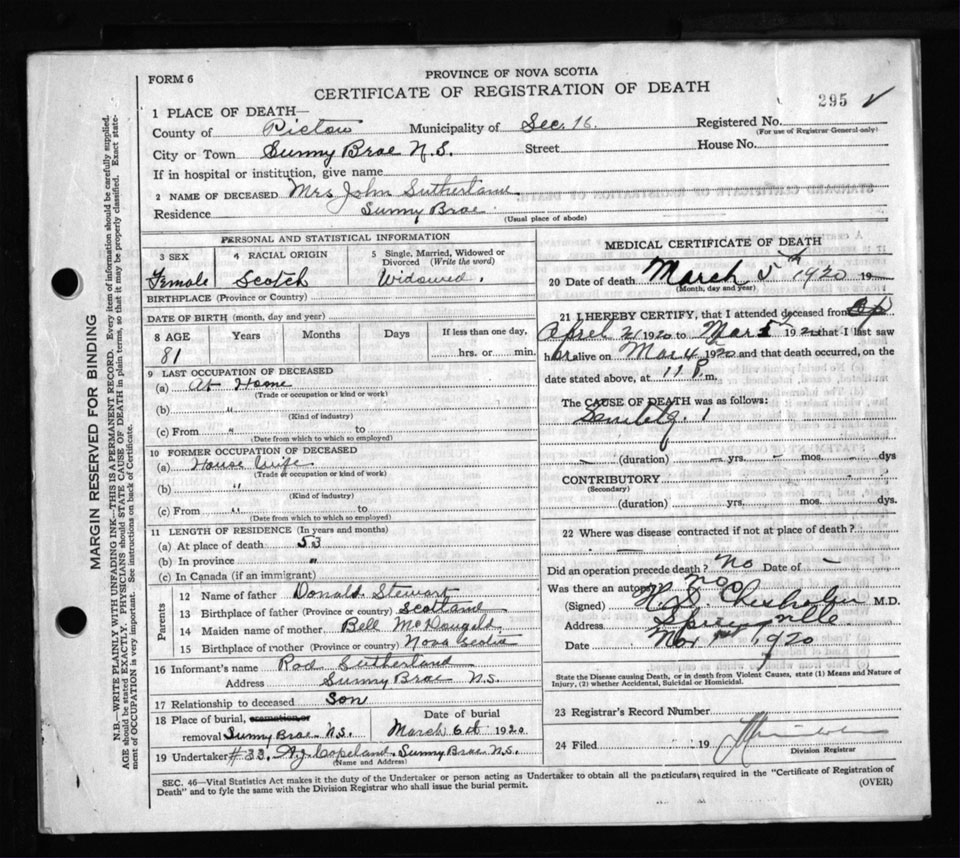 FORM 6
PROVINCE OF NOVA SCOTIA
CERTIFICATE OF REGISTRATION OF DEATH
295
1 PLACE OF DEATH—
County of Pictou Municipality of Sec. 16. Registered No.
(For use of Registrar General only)
City or Town Sunny Brae N.S. Street House No.
If in hospital or institution, give name
2 NAME OF DECEASED Mrs John Sutherland
Residence Sunny Brae
(Usual place of abode)
MARGIN RESERVED FOR BINDING
N.B.—WRITE PLAINLY WITH UNFADING INK—THIS IS A PERMANENT RECORD. Every item of information should be carefully supplied.
AGE should be stated EXACTLY. PHYSICIANS should STATE CAUSE OF DEATH in plain terms, so that it may be properly classified. Exact state-
ment of OCCUPATION is very important. See instructions on back of Certificate.
PERSONAL AND STATISTICAL INFORMATION
3 SEX 4 RACIAL ORIGIN 5 Single, Married, Widowed or
Divorced (Write the word)
Female Scotch Widowed.
BIRTHPLACE (Province or Country)
DATE OF BIRTH (month, day and year)
8 AGE Years Months Days If less than one day,
81 hrs. or min.
9 LAST OCCUPATION OF DECEASED
(a) At Home
(Trade or occupation or kind or work)
(b) "
(Kind of industry)
(c) From " to
(Date from which to which so employed)
10 FORMER OCCUPATION OF DECEASED
(a) House Wife
(Trade or occupation or kind of work)
(b) "
(Kind of industry)
(c) From " to
(Date from which to which so employed)
11 LENGTH OF RESIDENCE (In years and months)
(a) At place of death 53
(b) In province "
(c) In Canada (if an immigrant)
Parents
12 Name of father Donald Stewart
13 Birthplace of father (Province or country) Scotland
14 Maiden name of mother Bell McDougald
15 Birthplace of mother (Province or country) Nova Scotia
16 Informant's name Rod Sutherland
Address Sunny Brae N.S.
17 Relationship to deceased Son
18 Place of burial, cremation or Date of burial
removal Sunny Brae N.S. March 6th 1920
19 Undertaker #33. A.J. Copeland. Sunny Brae N.S.
(Name and Address)
MEDICAL CERTIFICATE OF DEATH
20 Date of death March 5th 1920 19
(Month, day and year)
21 I HEREBY CERTIFY, that I attended deceased from
April 21 1920 to Mar 5 1920 that I last saw
her alive on Mar 4 1920 and that death occurred, on the
date stated above, at 11 P. m.
The CAUSE OF DEATH was as follows:
(duration) yrs. mos. dys
CONTRIBUTORY
(Secondary)
(duration) yrs. mos. dys.
22 Where was disease contracted if not at place of death?
Did an operation precede death? No Date of —
Was there an autopsy No
(Signed) Chisholm M.D.
Address Springville
Date 1920
State the Disease causing Death, or in death from Violent Causes, state (1) Means and Nature of
Injury, (2) whether Accidental, Suicidal or Homicidal.
23 Registrar's Record Number
24 Filed 19
Division Registrar
SEC. 46—Vital Statistics Act makes it the duty of the Undertaker or person acting as Undertaker to obtain all the particulars required in the "Certificate of Registration of
Death" and to fyle the same with the Division Registrar who shall issue the burial permit.
(OVER)